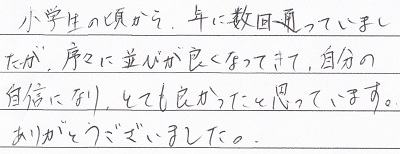 小学生の頃から、年に数回通っていまし
たが、序々に並びが良くなってきて、自分の
自信になり、とても良かったと思っています。
ありがとうございました。